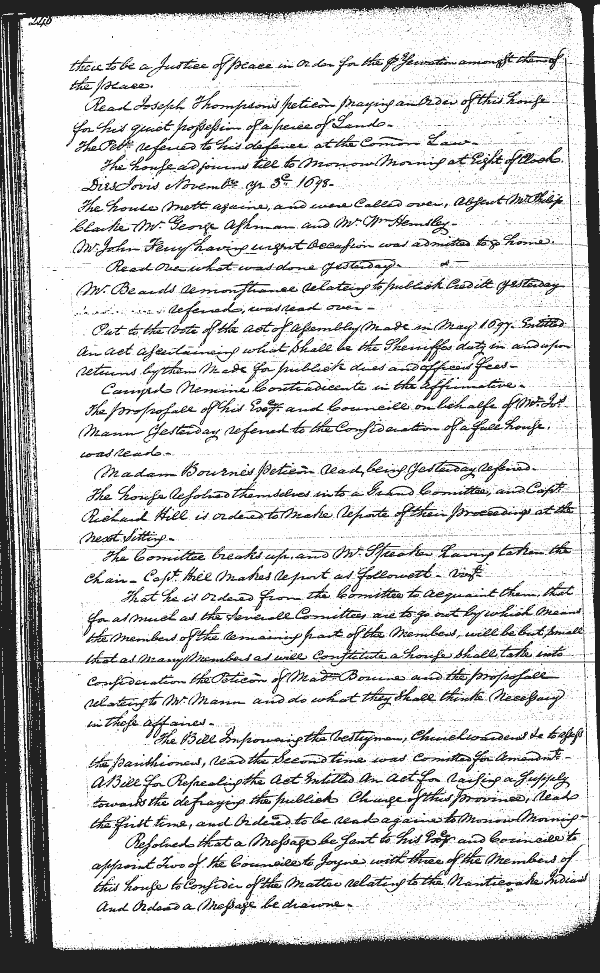 there to be a Justice of peace in order for the preservation amongst them of
the peace.
Read Joseph Thompsons peticon praying an Order of this house
for his quiet possession of a peece of Land.
The Petr. referred to his defence at the Comon Law.
The house adjourns till to Morrow Morning at Eight of Clock
Dies Jovis Novembr. ye 3d. 1698.
The house mett againe, and were Called over, Absent Mr. Philip
Clarke Mr. George Ashman and Mr. Wm Hemsley.
Mr. John Ferry having urgent occassion was admitted to go home.
Read over what was done yesterday.
Mr. Beards remonstrance relating to publick Creditt yesterday
referred, was read over.
Put to the vote of the act of Assembly Made in May 1697. Entitled
An act ascertaining what shall be the Sherriffes duty in and upon
returns by them Made for publick dues and officers fees.
Carryed Nemine Contradicente in the affirmative.
The proposall of his Excy. and Councill on behalfe of Mr. Jos.
Mann Yesterday referred to the Consideration of a full house,
was read.
Madam Bournes peticon read, being yesterday referred.
The house resolved themselves into a Grand Comittee, and Capt.
Richard Hill is ordered to Make reporte of their proceedings at the
next Sitting.
The Comittee breaks up, and Mr. Speaker having taken the
Chair. Capt. Hill Makes report as followeth. vizt.
That he is Ordered from the Comittee to acquaint them, that
for as much as the Severall Comittees are to go out by which means
the Members of the remaining part of the Members, will be but small
that as many Members as will Constitute a house shall take into
Consideration the Peticon of Madm. Bourne and the proposall
relating to Mr. Mann and do what they shall thinke Necessary
in those affaires.
The Bill Impowring the Vestrymen, Churchwardens &c to assess
the parishioners, read the Second time was Comitted for Amendmt.
A Bill for Repealing the Act Entitled An Act for raising a Supply
towards the defraying the publick Charge of this Province, read
the first time, and Ordered to be read againe to Morrow Morning.
Resolved that a Message be sent to his Excy. and Councill to
appoint Two of the Councill to Joyne with three of the Members of
this house to Consider of the Matter relating to the Nanticoake Indians
And Ordered a Message be drawne.